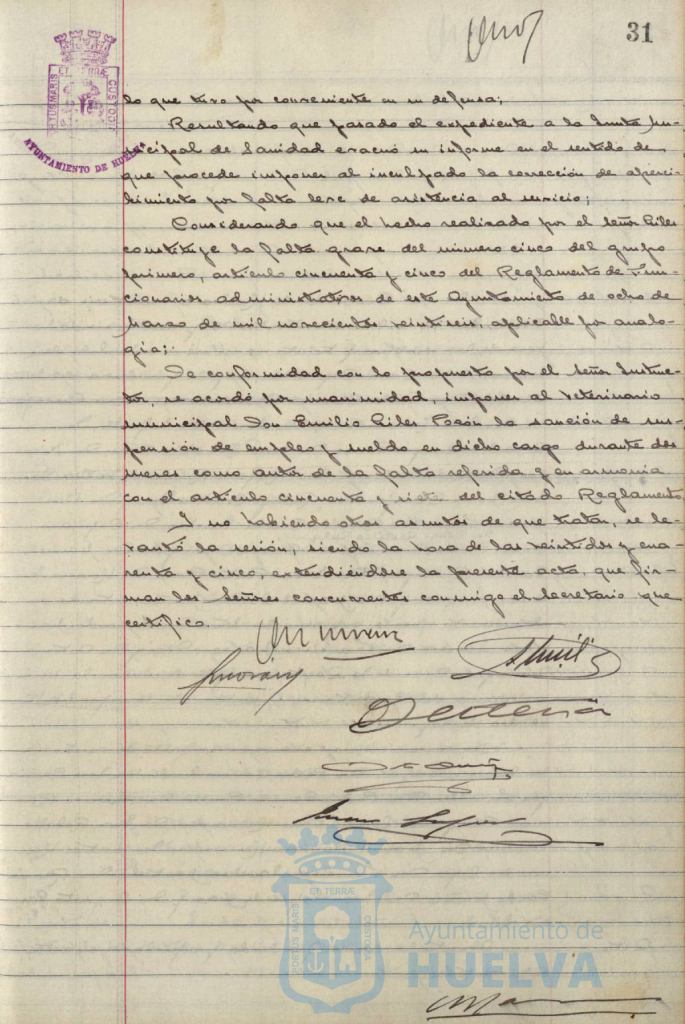 31
PORTUS MARIS
ET TERRÆ
CUSTODIA
AYUNTAMIENTO DE HUELVA
lo que tuvo por conveniente en su defensa;
Resultando que pasado el expediente a la Junta Mu-
nicipal de Sanidad evacuó su informe en el sentido de
que procede imponer al inculpado la corrección de aperci-
bimiento por falta leve de asistencia al servicio;
Considerando que el hecho realizado por el Señor Giles
constituye la falta grave del número cinco del grupo
primero, artículo cincuenta y cinco del Reglamento de Fun-
cionarios administrativos de este Ayuntamiento de ocho de
Marzo de mil novecientos veintiseis, aplicable por analo-
gía;
De conformidad con lo propuesto por el Señor Instruc-
tor, se acordó por unanimidad, imponer al Veterinario
municipal Don Emilio Giles la sanción de sus-
pensión de empleo y sueldo en dicho cargo durante dos
meses como autor de la falta referida y en armonía
con el artículo cincuenta y siete del citado Reglamento.
Y no habiendo otros asuntos de que tratar, se le-
vantó la sesión, siendo la hora de las veintidos y cua-
renta y cinco, extendiéndose la presente acta, que fir-
man los Señores concurrentes conmigo el Secretario que
certifico.
PORTUS MARIS
ET TERRÆ
CUSTODIA
Ayuntamiento de
HUELVA